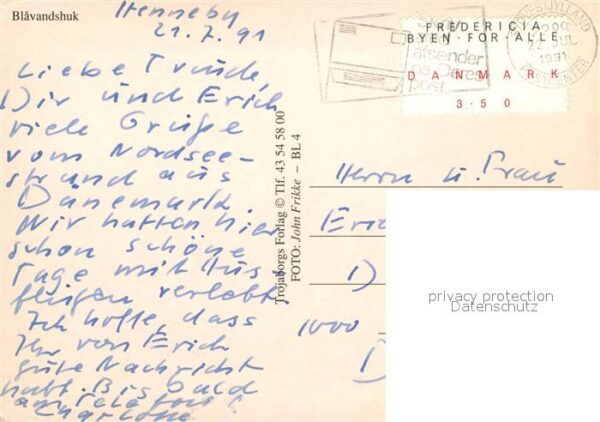 Blåvandshuk
Henneby
21.7.91
Liebe Trude,
Dir und Erich
viele Grüße
vom Nordsee-
strand aus
Dänemark.
Wir hatten hier
schon schöne
Tage mit Aus
flügen verlebt.
Ich hoffe, dass
Ihr von Erich
gute Nachricht
habt. Bis bald
am Telefon!
Charlotte
Trojaborgs Forlag © Tlf. 43 54 58 00
FOTO: John Frikke – BL 4
afsender
post
FREDERICIA
BYEN·FOR·ALLE
DANMARK
3·50
VESTJYLLAND
22 JUL
1991
POSTCENTER
Herrn u. Frau
Eric
D
1000
D
privacy protection
Datenschutz